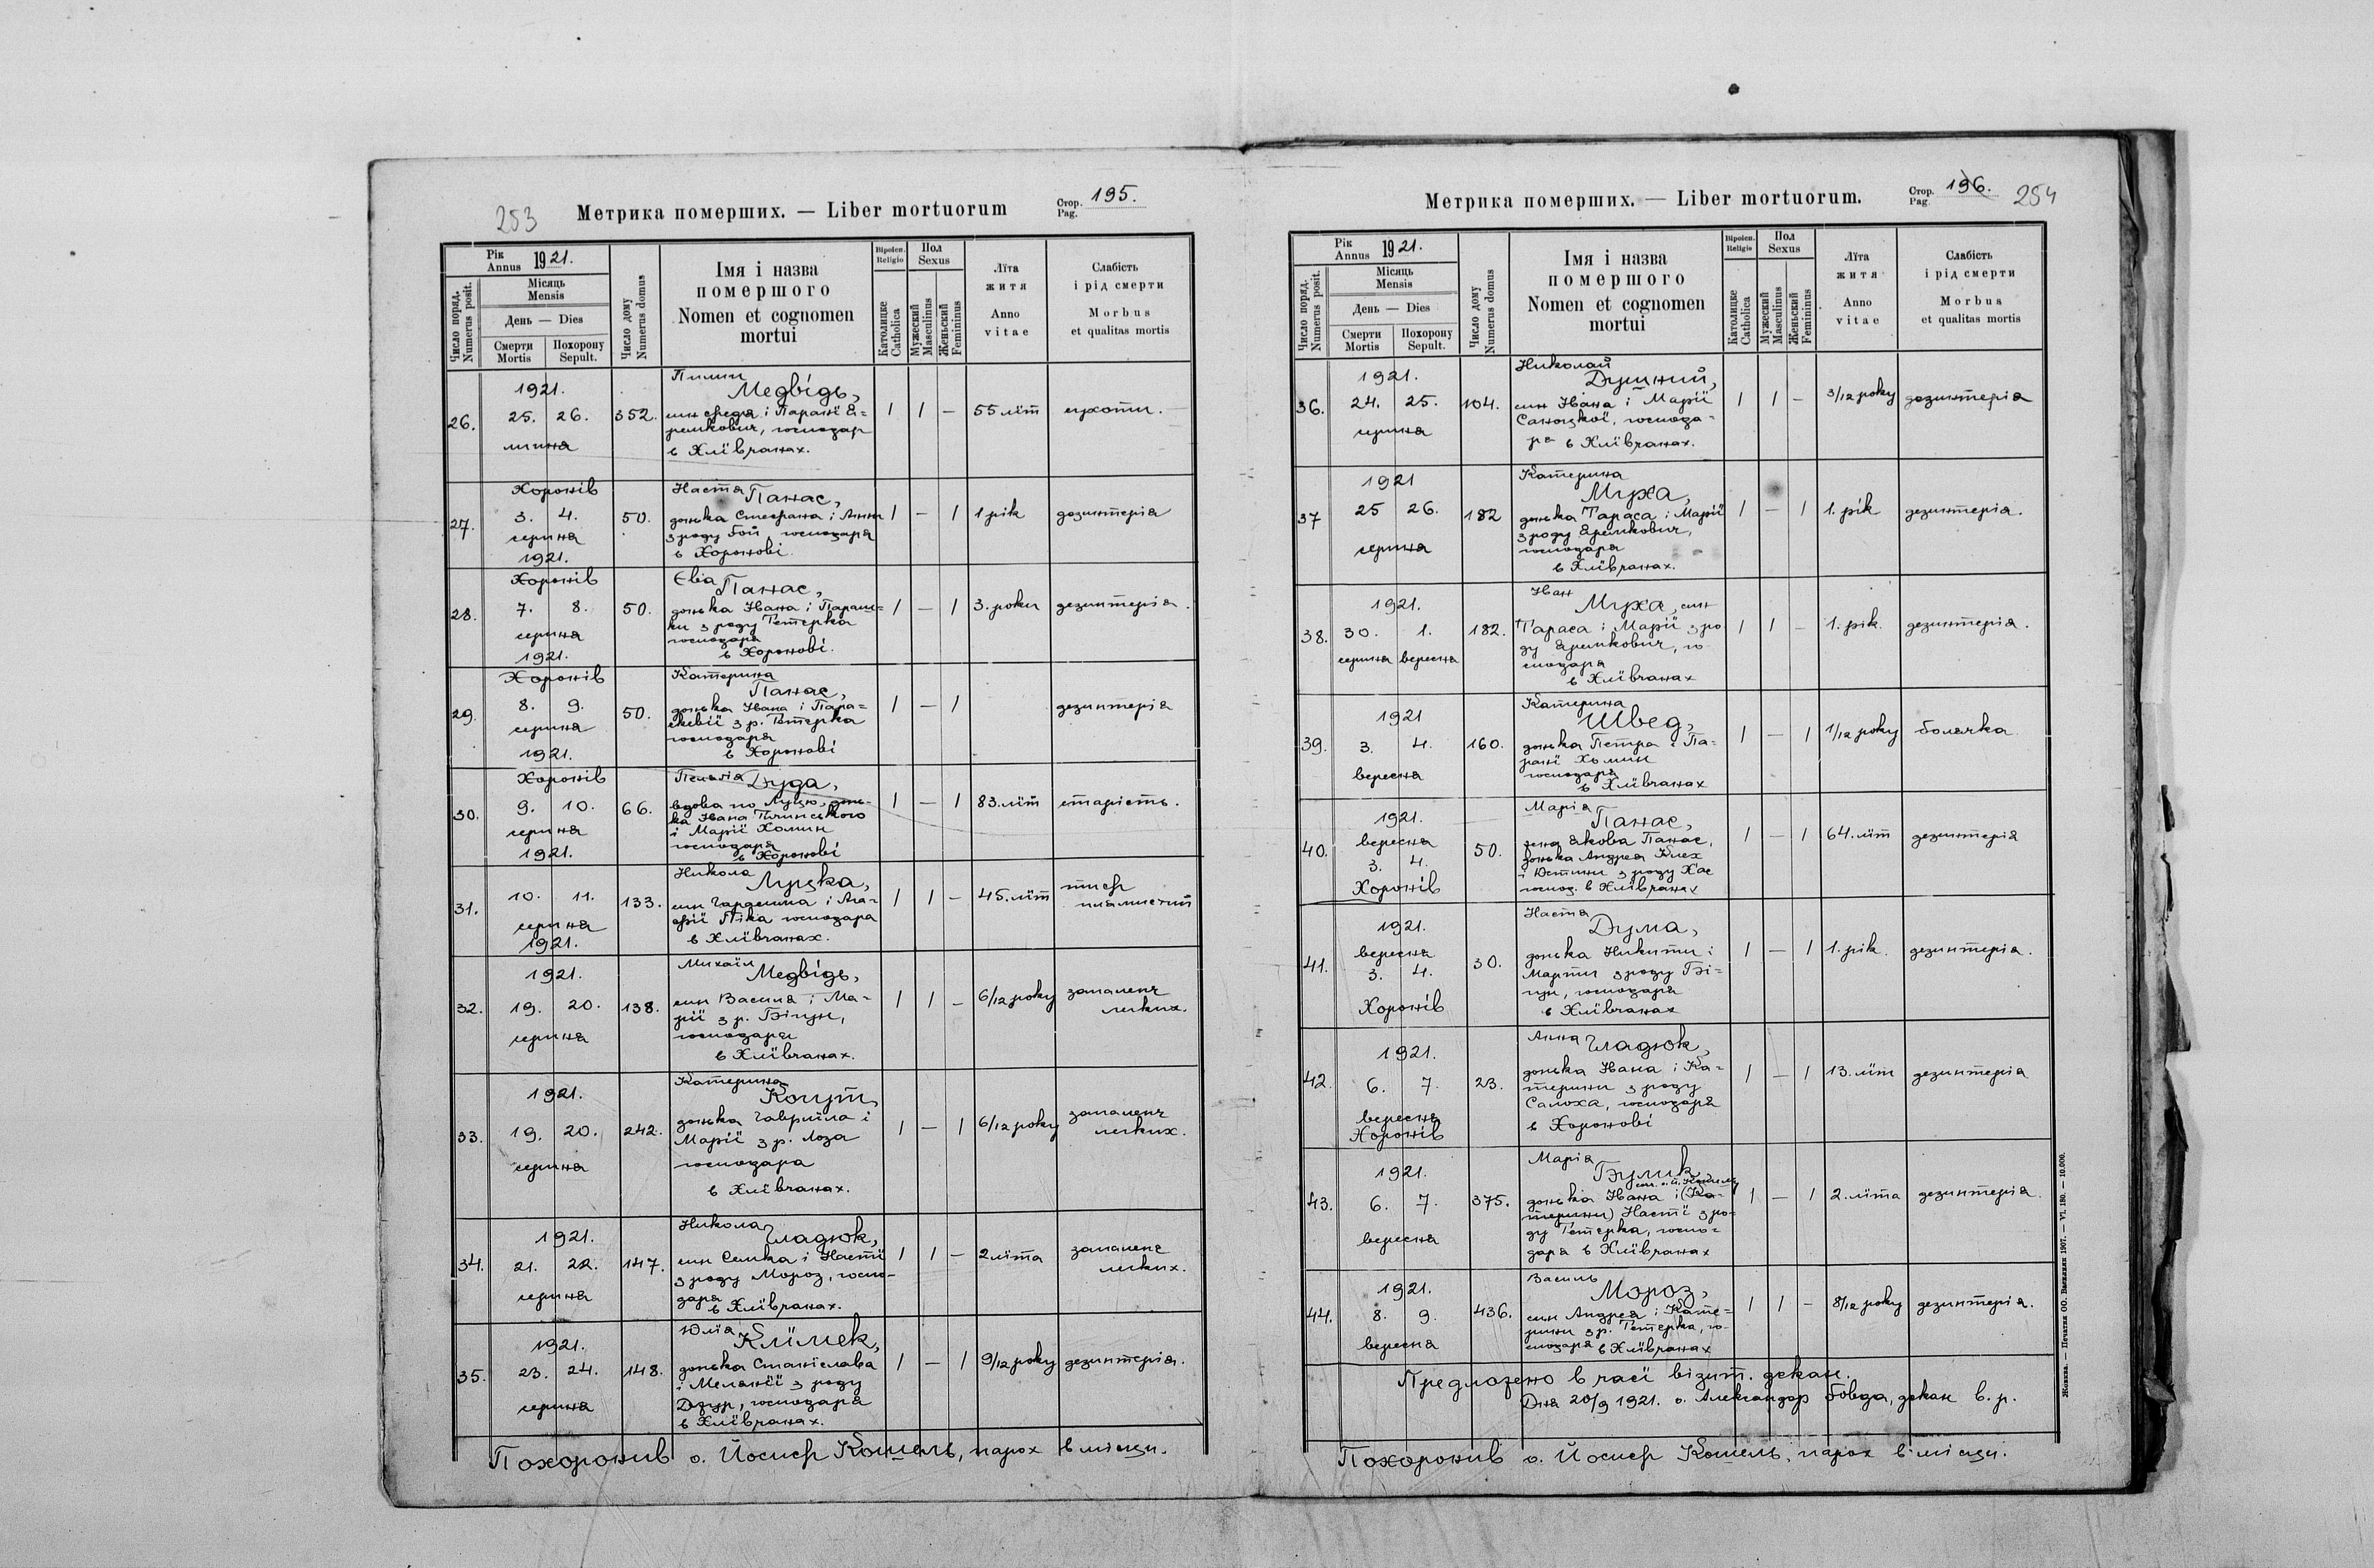 253
Метрика померших. — Liber mortuorum
Стор. Pag. 195.
Рік Annus 1921.
Число поряд. Numerus posit.
Місяць Mensis
День — Dies
Смерти Mortis
Похорону Sepult.
Число дому Numerus domus
Імя і назва помершого Nomen et cognomen mortui
Віроісп. Religio
Католицке Catholica
Пол Sexus
Мужеский Masculinus
Женьский Femininus
Лїта житя Anno vitae
Слабість і рід смерти Morbus et qualitas mortis
26.
1921.
25. 26.
липня
352.
Пилип
Медвідь,
син Федя і Паранї Я=
ремкович, господар
в Хлївчанах.
1 1 —
55 лїт
сухоти.
27.
Хоронів
3. 4.
серпня
1921.
50.
Настя Панас,
донька Стефана і Анни
з роду Бой, господаря
в Хоронові.
1 — 1
1 рік
дезинтерія
28.
Хоронів
7. 8.
серпня
1921.
50.
Єва
Панас,
донька Івана і Параш=
ки з роду Тетерка
господаря
в Хоронові.
1 — 1
3. роки
дезинтерія.
29.
Хоронів
8. 9.
серпня
1921.
50.
Катерина
Панас,
донька Івана і Пара=
скевії з р. Тетерка
господаря
в Хоронові
1 — 1
дезинтерія
30.
Хоронів
9. 10.
серпня
1921.
66.
Дуда,
вдова по Луцю, донь-
ка Івана
і Марії Хомин
господаря
в Хоронові
1 — 1
83. лїт
старість.
31.
10. 11.
серпня
1921.
133.
Никола
Луцка,
син Гарасима і Ага-
фії Пїка господаря
в Хлївчанах.
1 1 —
45. лїт
тиф
плямистий
32.
1921.
19. 20.
серпня
138.
Михаїл
Медвідь,
син Василя і Ма-
рії з р. Біґун,
господаря
в Хлївчанах.
1 1 —
6/12 року
запаленє
легких.
33.
1921.
19. 20.
серпня
242.
Катерина
Когут,
донька Гавриїла і
Марії з р. Лоза
господаря
в Хлївчанах.
1 — 1
6/12 року
запаленє
легких.
34.
1921.
21. 22.
серпня
147.
Никола
Гладюк,
син Семка і Настї
з роду Мороз, госпо-
даря
в Хлївчанах.
1 1 —
2 лїта
запаленє
легких.
35.
1921.
23. 24.
серпня
148.
Юлїя
Клїмек,
донька Станїслава
і Меланїї з роду
господаря
в Хлївчанах.
1 — 1
9/12 року
дезинтерія.
Похоронив о. Йосиф Кошель, парох в місци.
Метрика померших. — Liber mortuorum.
Стор. Pag. 196.
254
Рік Annus 1921.
Число поряд. Numerus posit.
Місяць Mensis
День — Dies
Смерти Mortis
Похорону Sepult.
Число дому Numerus domus
Імя і назва помершого Nomen et cognomen mortui
Віроісп. Religio
Католицке Catholica
Пол Sexus
Мужеский Masculinus
Женьский Femininus
Лїта житя Anno vitae
Слабість і рід смерти Morbus et qualitas mortis
36.
1921.
24. 25.
серпня
104.
Николай
Душний,
син Івана і Марії
Саноцкої, господа-
ря в Хлївчанах.
1 1 —
3/12 року
дезинтерія
37
1921
25 26.
серпня
182
Катерина
Муха,
донька Тараса і Марії
з роду Яремкович,
господаря
в Хлївчанах.
1 — 1
1. рік
дезинтерія.
38.
1921.
30. 1.
серпня вересня
182.
Іван
Муха, син
Тараса і Марії з ро
ду Яремкович, го
сподаря
в Хлївчанах
1 1 —
1. рік.
дезинтерія.
39.
1921
3. 4.
вересня
160.
Катерина
Швед,
донька Петра і Па=
ранї Хомин
господаря
в Хлївчанах
1 — 1
1/12 року
болячка
40.
1921.
вересня
3. 4.
Хоронів
50.
Марія
Панас,
жена Якова Панас,
донька Андрея Клех
і Юстини з роду Хас
господ. в Хлївчанах
1 — 1
64. лїт
дезинтерія
41.
1921.
вересня
3. 4.
Хоронів
30.
Настя
Дума,
донька Никити і
Марти з роду Бі=
гун, господаря
в Хлївчанах
1 — 1
1. рік.
дезинтерія.
42.
1921.
6. 7.
вересня
Хоронів
23.
Анна Гладюк,
донька Івана і Ка-
терини з роду
Салоха, господаря
в Хоронові
1 — 1
13. лїт
дезинтерія
43.
1921.
6. 7.
вересня
375.
Марія
Бумик,
донька Івана і (Ка-
терини) Настї з ро-
ду Тетерка, госпо-
даря в Хлївчанах
1 — 1
2. лїта
дезинтерія.
44.
1921.
8. 9.
вересня
436.
Василь
Мороз,
син Андрея і Кате=
рини з р. Тетерка, го-
сподаря в Хлївчанах
1 1 —
8/12 року
дезинтерія.
Предложено в часї візит. декан.
Дня 20/9 1921. о. Александер Бовда, декан в. р.
Похоронив о. Йосиф Кошель, парох в місци.
Жовква. — Печатня ОО. Василиян 1907. — VI. 180. — 10.000.